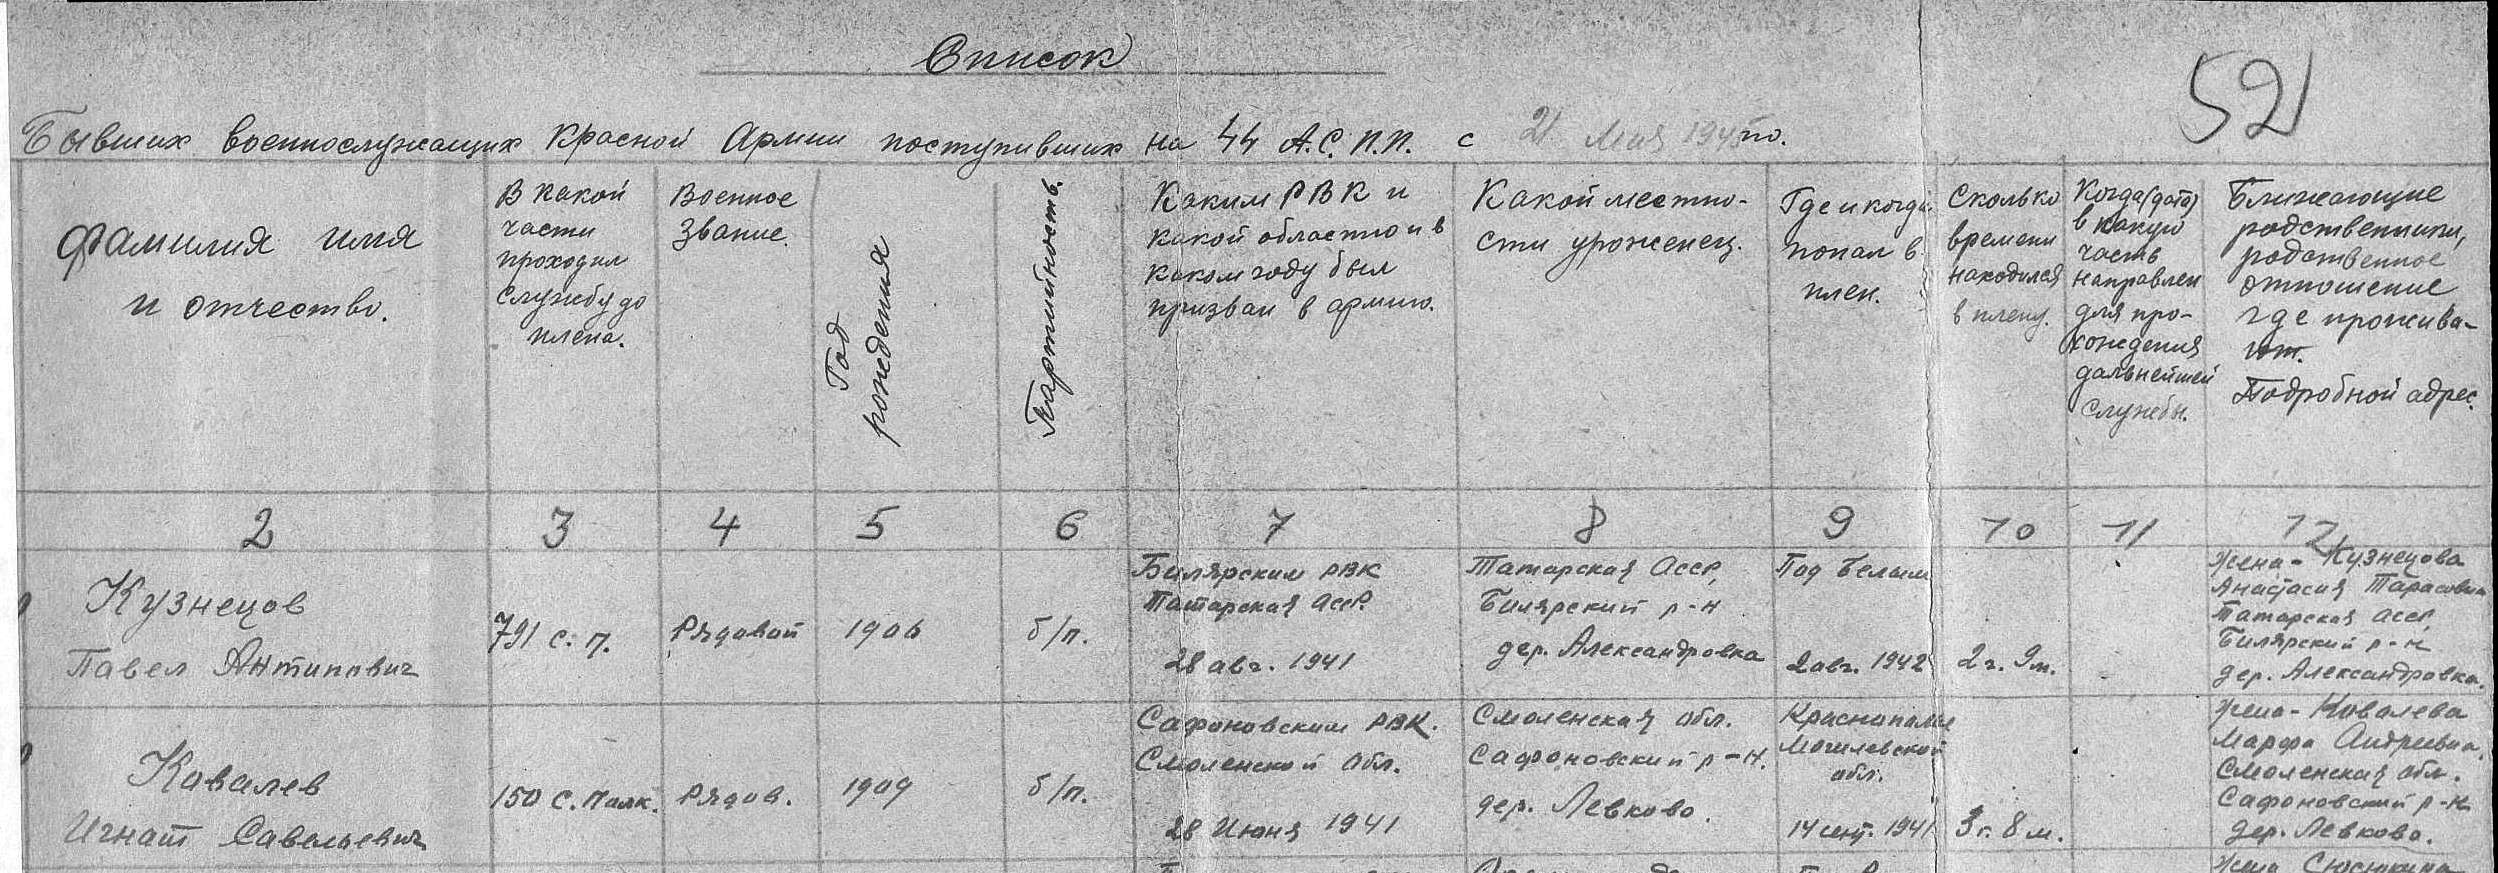 Список
52
Бывших военнослужащих Красной Армии поступивших на 44 А.С.П.П. с 21 Мая 1945 по.
Фамилия имя
и отчество.
В какой
части
проходил
службу до
плена.
Военное
звание.
Год
рождения
Партийность.
Каким РВК и
какой областью и в
каком году был
призван в армию.
Какой местно-
сти уроженец.
Где и когда
попал в
плен.
Сколько
времени
находился
в плену.
Когда (дата)
в какую
часть
направлен
для про-
хождения
дальнейшей
службы.
Ближающие
родственники,
родственное
отношение
где прожива-
ют.
Подробной адрес.
2 3 4 5 6 7 8 9 10 11 12
Кузнецов
Павел Антипович
791 с.п.
Рядовой
1906
б/п.
Билярским РВК
Татарская АССР.
28 авг. 1941
Татарская АССР,
Билярский р-н
дер. Александровка
Под Белым
2 авг. 1942
2 г. 9 м.
Жена - Кузнецова
Анастасия Тарасовна
Татарская АССР,
Билярский р-н
дер. Александровка.
Ковалев
Игнат Савельевич
150 с. полк.
Рядов.
1909
б/п.
Сафоновским РВК.
Смоленской обл.
28 Июня 1941
Смоленская обл.
Сафоновский р-н.
дер. Левково.
Краснополье
Могилевской
обл.
14 сент. 1941
3 г. 8 м.
Жена - Ковалева
Марфа Андреевна.
Смоленская обл.
Сафоновский р-н
дер. Левково.
Жена